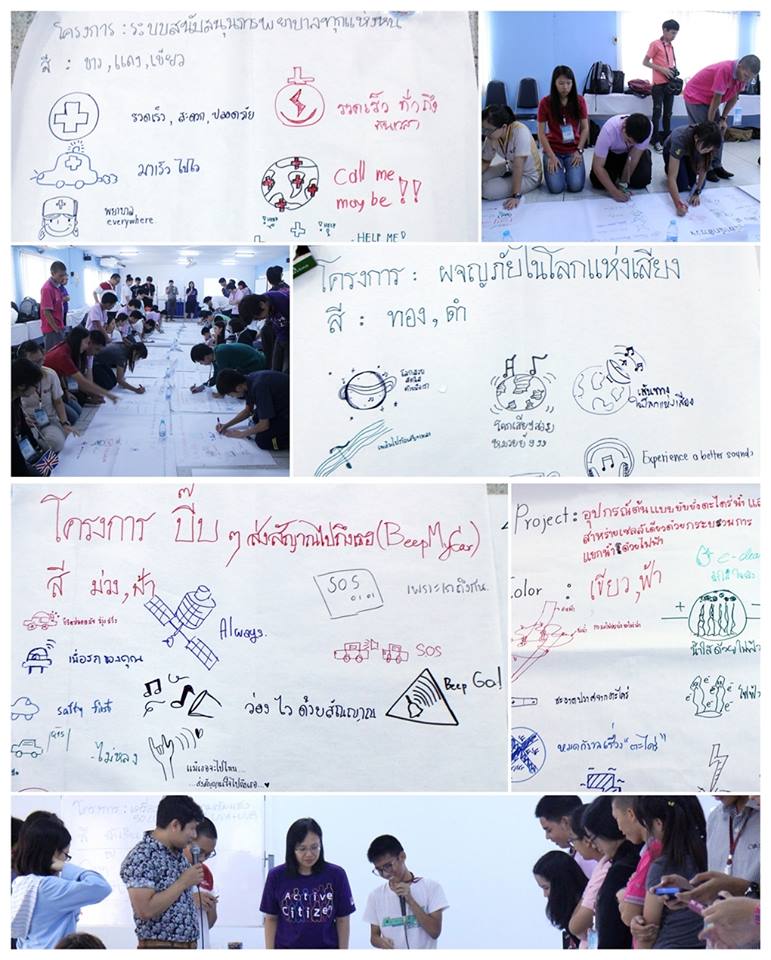 โครงการ : ระบบสนับสนุนการพยาบาลทุกแห่งหน
สี : ขาว, แดง, เขียว
รวดเร็ว, สะดวก, ปลอดภัย
มาเร็ว ไปไว
พยาบาล
everywhere.
รวดเร็ว ทั่วถึง
ทันเวลา
Call me
maybe !!
- HELP ME
โครงการ : ผจญภัยในโลกแห่งเสียง
สี : ทอง, ดำ
เส้นทาง
โลกแห่งเสียง
Experience a better sound
โครงการ ปี๊บ ๆ ส่งสัญญาณไปถึงเธอ (BeepMyCar)
สี ม่วง, ฟ้า
Always.
SOS
0101
เพราะเราถึงกัน.
เพื่อรถของคุณ
SOS
safty first
ว่องไวด้วยสัญญาณ
Beep Go!
- ไม่หลง
แม้เธอจะไปไหน...
...ส่งสัญญาณไปถึงเธอ...
Project : อุปกรณ์ต้นแบบยับยั้งตะไคร่น้ำและ
สาหร่ายเซลล์เดียวด้วยกระบวนการ
แยกน้ำด้วยไฟฟ้า
Color : เขียว, ฟ้า
น้ำใสด้วยไฟฟ้า
สะอาดปราศจากตะไคร่
หมดกังวลเรื่อง "ตะไคร่"
Active
Citizen